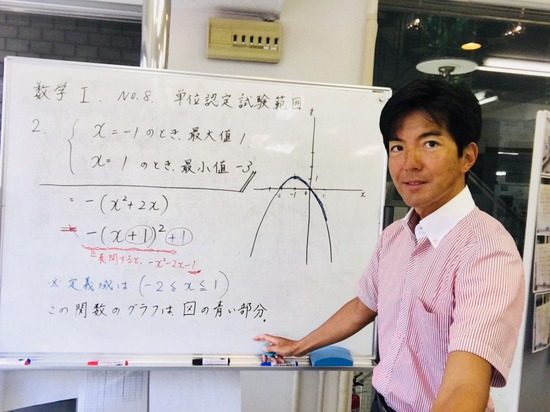 数学 I. No.8. 単位認定試験範囲
2. { x = -1 のとき、最大値 1.
x = 1 のとき、最小値 -3
= -(x²+2x)
= -(x+1)² +1
展開すると、-x²-2x-1
※ 定義域は (-2 ≦ x ≦ 1)
この関数のグラフは 図の青い部分.
-2 -1 0 1
1
x